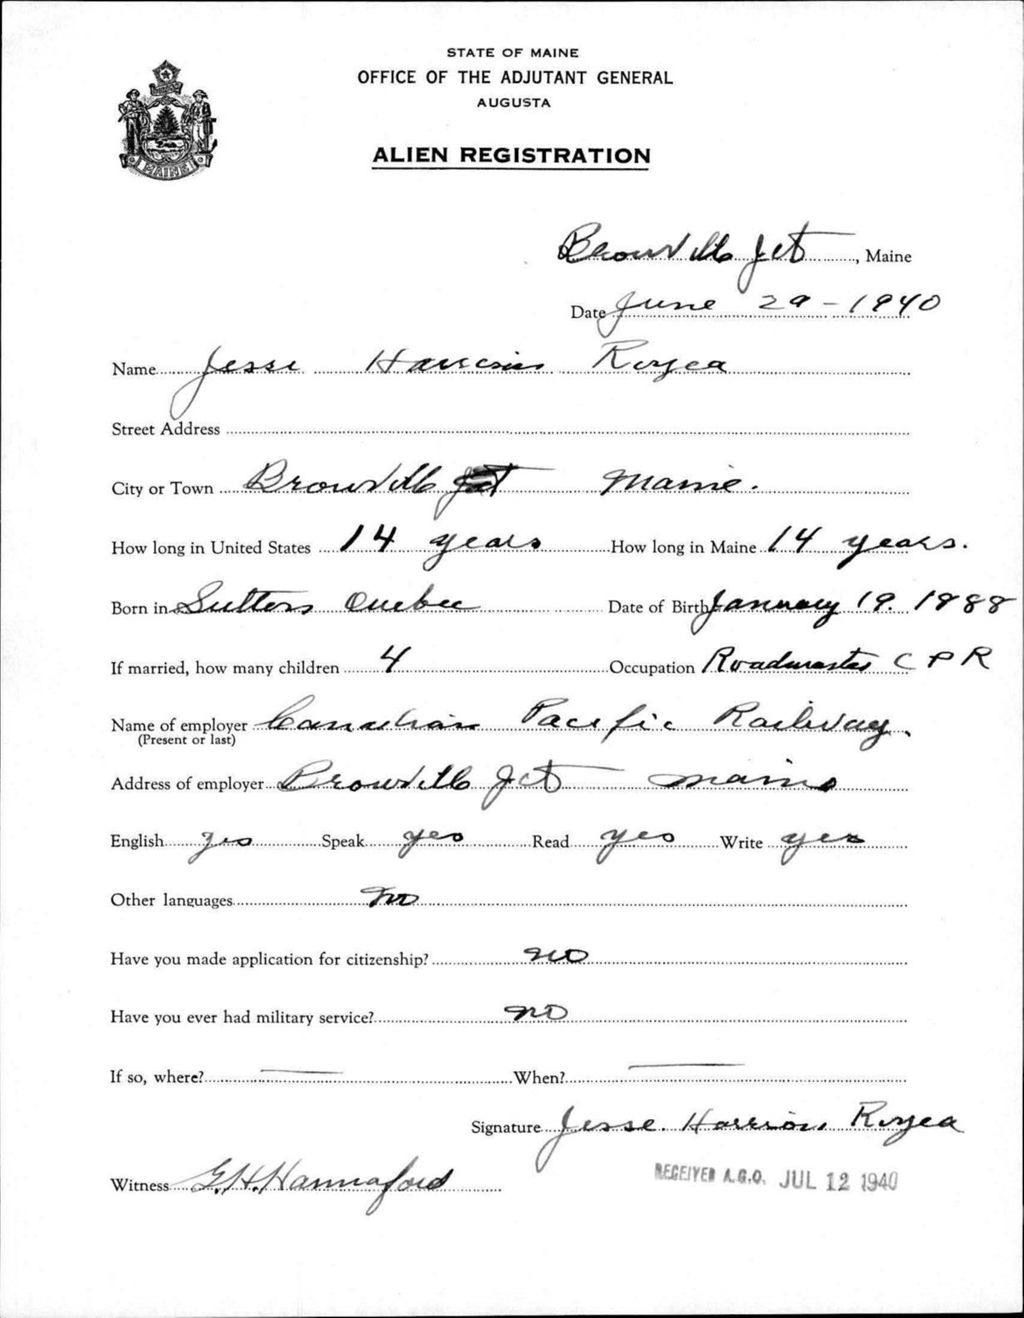 STATE OF MAINE
OFFICE OF THE ADJUTANT GENERAL
AUGUSTA
ALIEN REGISTRATION
MAINE
Brownville Jct, Maine
Date June 29 - 1940
Name Jesse Harrison Royea
Street Address
City or Town Brownville Jct Maine.
How long in United States 14 years How long in Maine 14 years.
Born in Sutton Quebec Date of Birth January 19. 1888
If married, how many children 4 Occupation Roadmaster C P R
Name of employer Canadian Pacific Railway.
(Present or last)
Address of employer Brownville Jct Maine
English yes Speak yes Read yes Write yes
Other languages no
Have you made application for citizenship? no
Have you ever had military service? no
If so, where? — When? —
Signature Jesse Harrison Royea
Witness G.H. Hannaford
RECEIVED A.G.O. JUL 12 1940